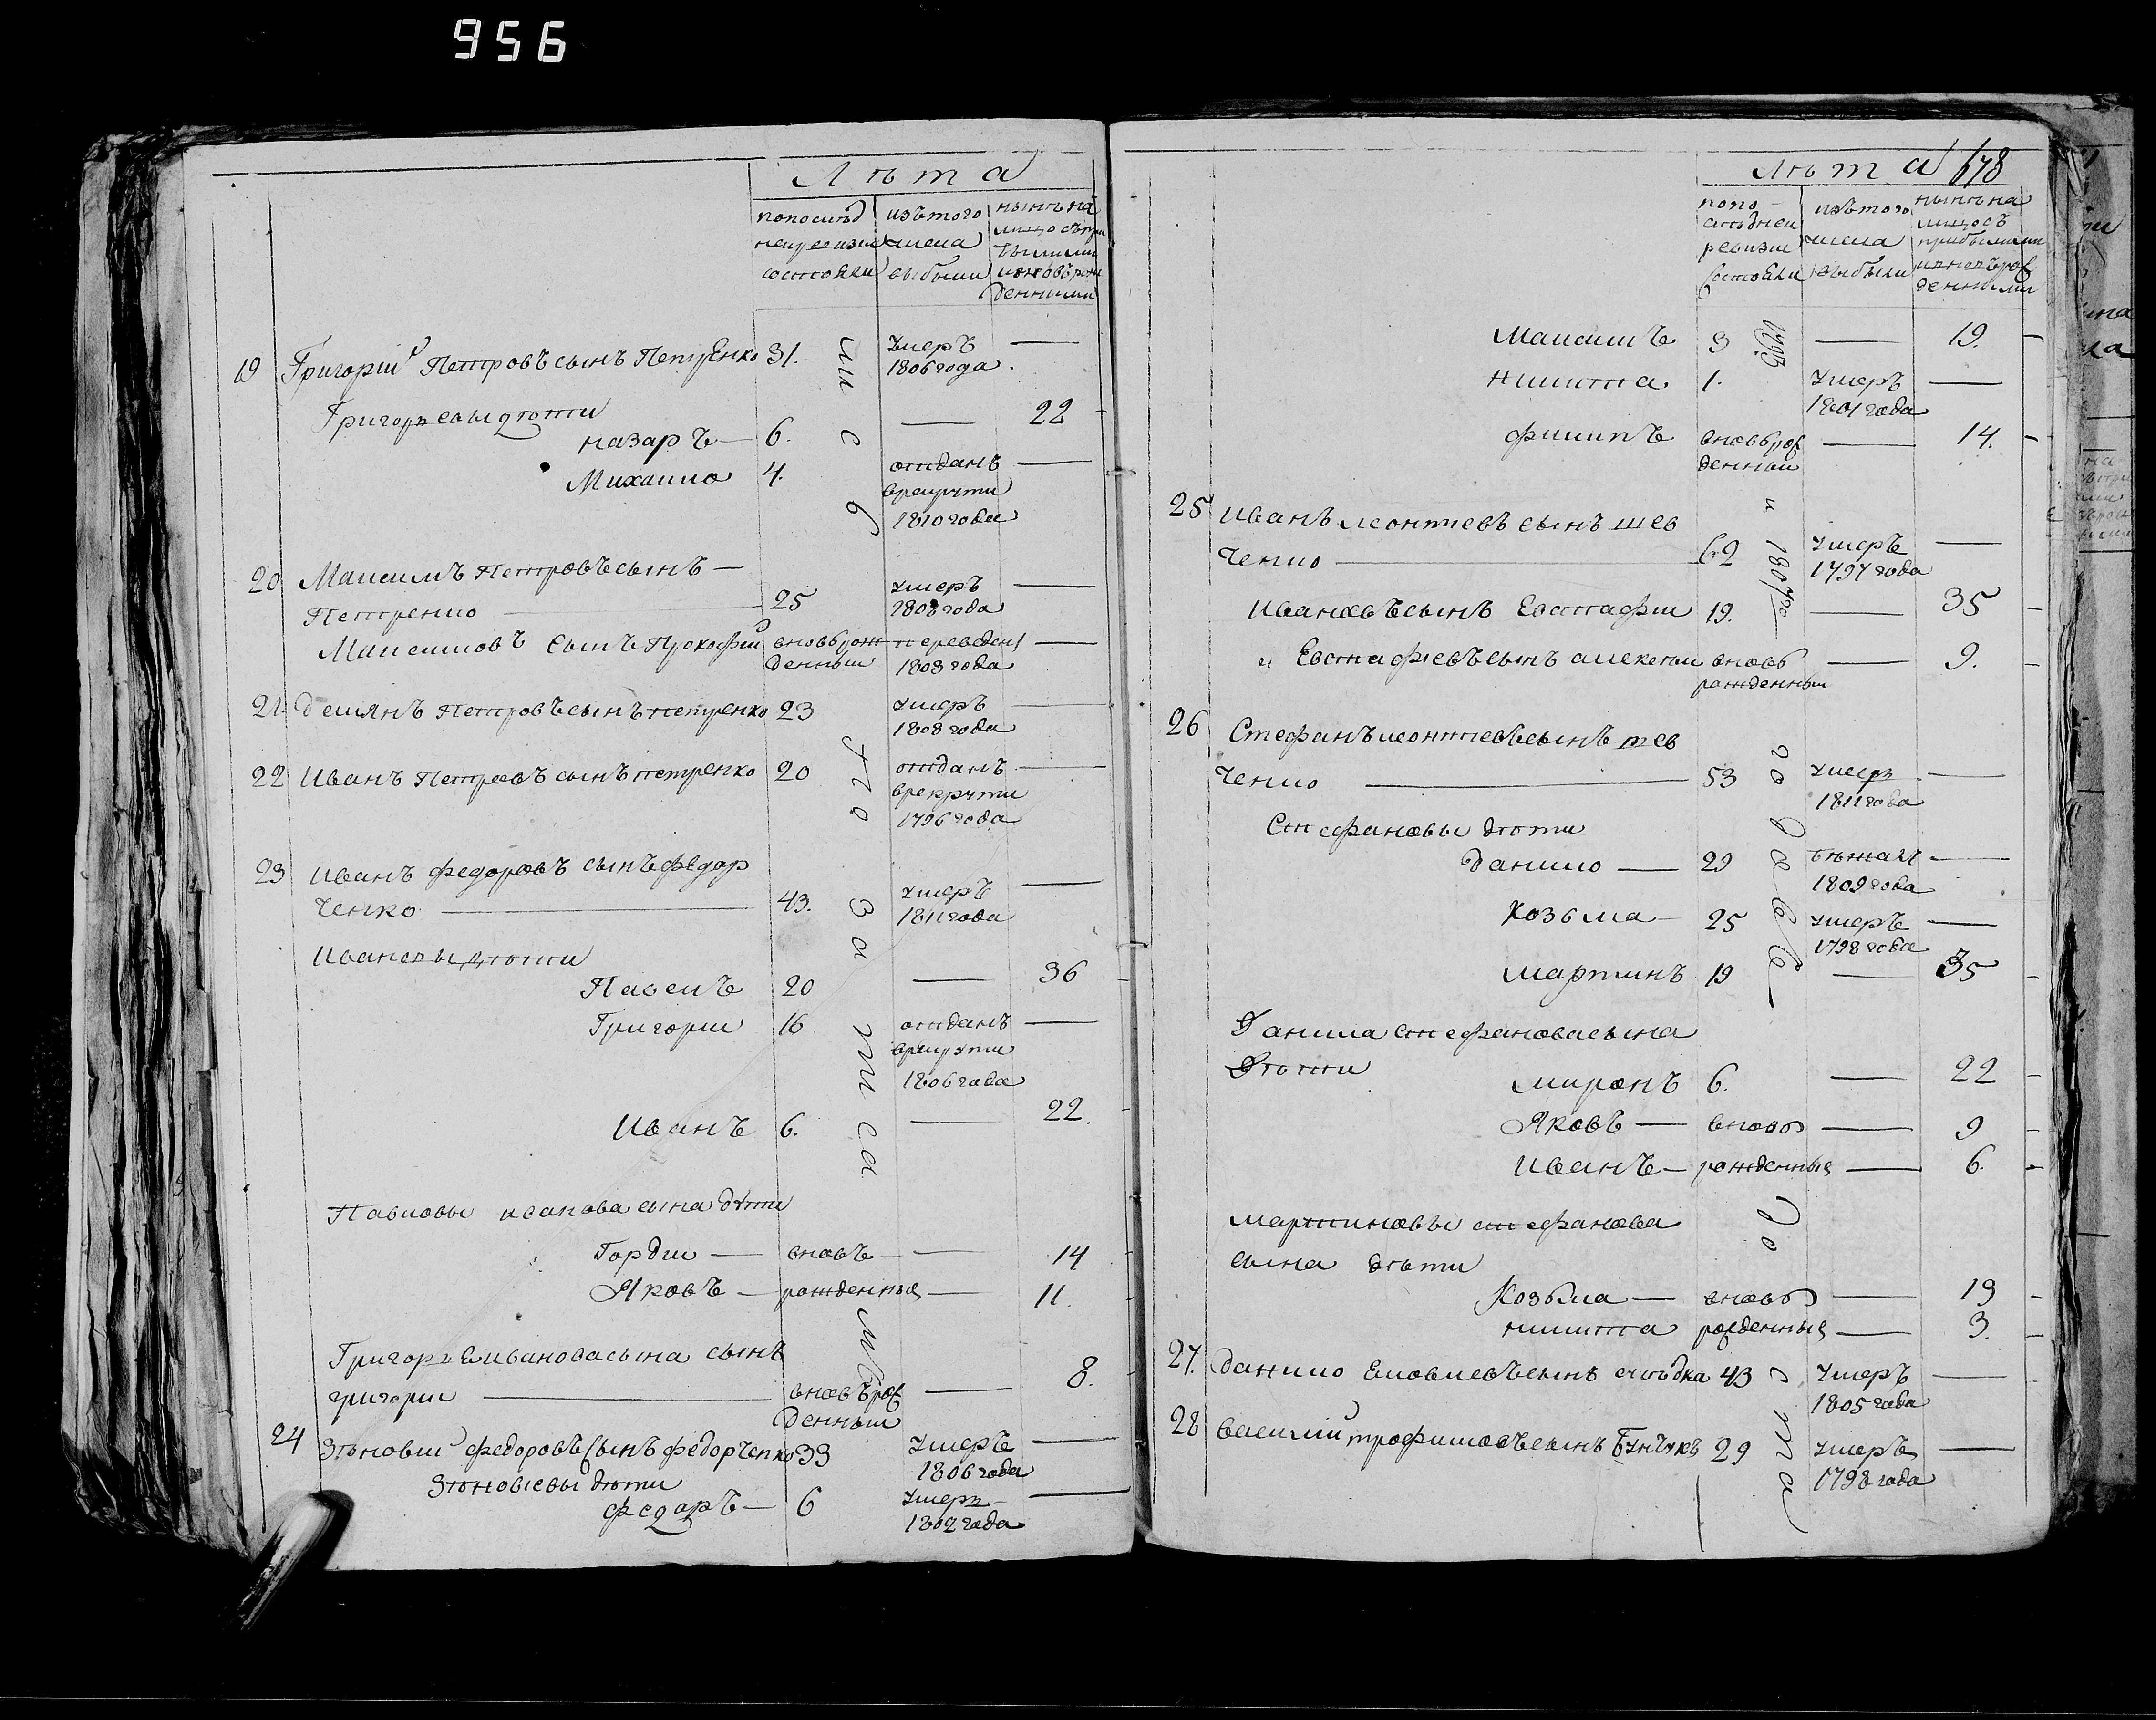 956
Лѣта
попослѣд
ней ревизіи
состояли
изътого
числа
выбыли
нынѣ на
лицо съ при
былыми
и вновь рож
денными
19 Григорій Петровъ сынъ Петренко 31. умеръ —
1806 года
Григорьевы дѣти
назаръ — 6. — 22
Михаило 4. отданъ —
врекруты
1810 года
20 Максимъ Петровъ сынъ —
Петренко — 25 умеръ —
1808 года
Максимовъ сынъ Прокофий вновь рож переведен —
денный 1808 года
21. демянъ Петровъ сынъ петренко 23 умеръ —
1808 года
22 Иванъ Петровъ сынъ петренко 20 отданъ —
врекруты
1796 года
23 Иванъ федоровъ сынъ федор
ченко — 43. умеръ —
1811 года
Ивановы дѣти
Павелъ 20 — 36
Григории 16 отданъ —
врекруты
1806 года
Иванъ 6. — 22.
Павловы иванова сына дѣти
Гордии — вновь — 14
Яковъ — рожденные — 11.
Григорья иванова сына сынъ
григории — вновь рож — 8.
денныи
24 Зѣновии федоровъ сынъ федорченко 33 умеръ —
1806 года
Зѣновиевы дѣти
федоръ — 6 умеръ —
1802 года
Лѣта 678
попо
слѣдней
ревизіи
состояли
изътого
числа
выбыли
нынѣ на
лицо съ
прибылыми
и вновь рож
денными
Максимъ 3 — 19.
никита. 1. умеръ —
1801 года
филипъ вновь рож — 14.
денныи
25 Иванъ леонтиевъ сынъ шев
ченко — 62 умеръ —
1797 года
Ивановъ сынъ Евстафии 19. — 35
и Евстафиевъ сынъ алексѣи вновь — 9.
рожденныи
26 Стефанъ леонтиевъ сынъ шев
ченко — 53 умеръ —
1811 года
Стефановы дѣти
данило — 29 бѣжалъ —
1809 года
Козьма — 25 умеръ —
1798 года
мартинъ 19 — 35
Данила стефанова сына
дѣти
миронъ 6. — 22
Яковъ — вновь — 9
Иванъ — рожденные — 6.
мартиновы стефанова
сына дѣти
Козьма — вновь — 13
никита рожденные — 3.
27. данило Яковлевъ сынъ 43 умеръ —
1805 года
28 василий трофимовъ сынъ 29 умеръ —
1798 года